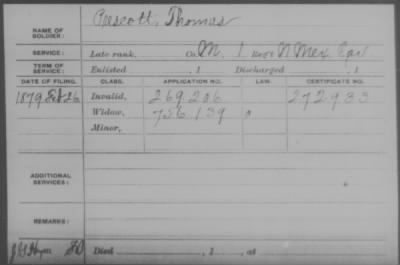 Prescott, Thomas
NAME OF SOLDIER:
SERVICE: Late rank, Co. M. 1 Reg't N Mex Cav
TERM OF SERVICE: Enlisted , 1 Discharged , 1
DATE OF FILING. CLASS. APPLICATION NO. LAW. CERTIFICATE NO.
1879 Feb 26 Invalid, 269.206 272.933
Widow, 756.139
Minor,
ADDITIONAL SERVICES:
REMARKS:
Died , 1 , at